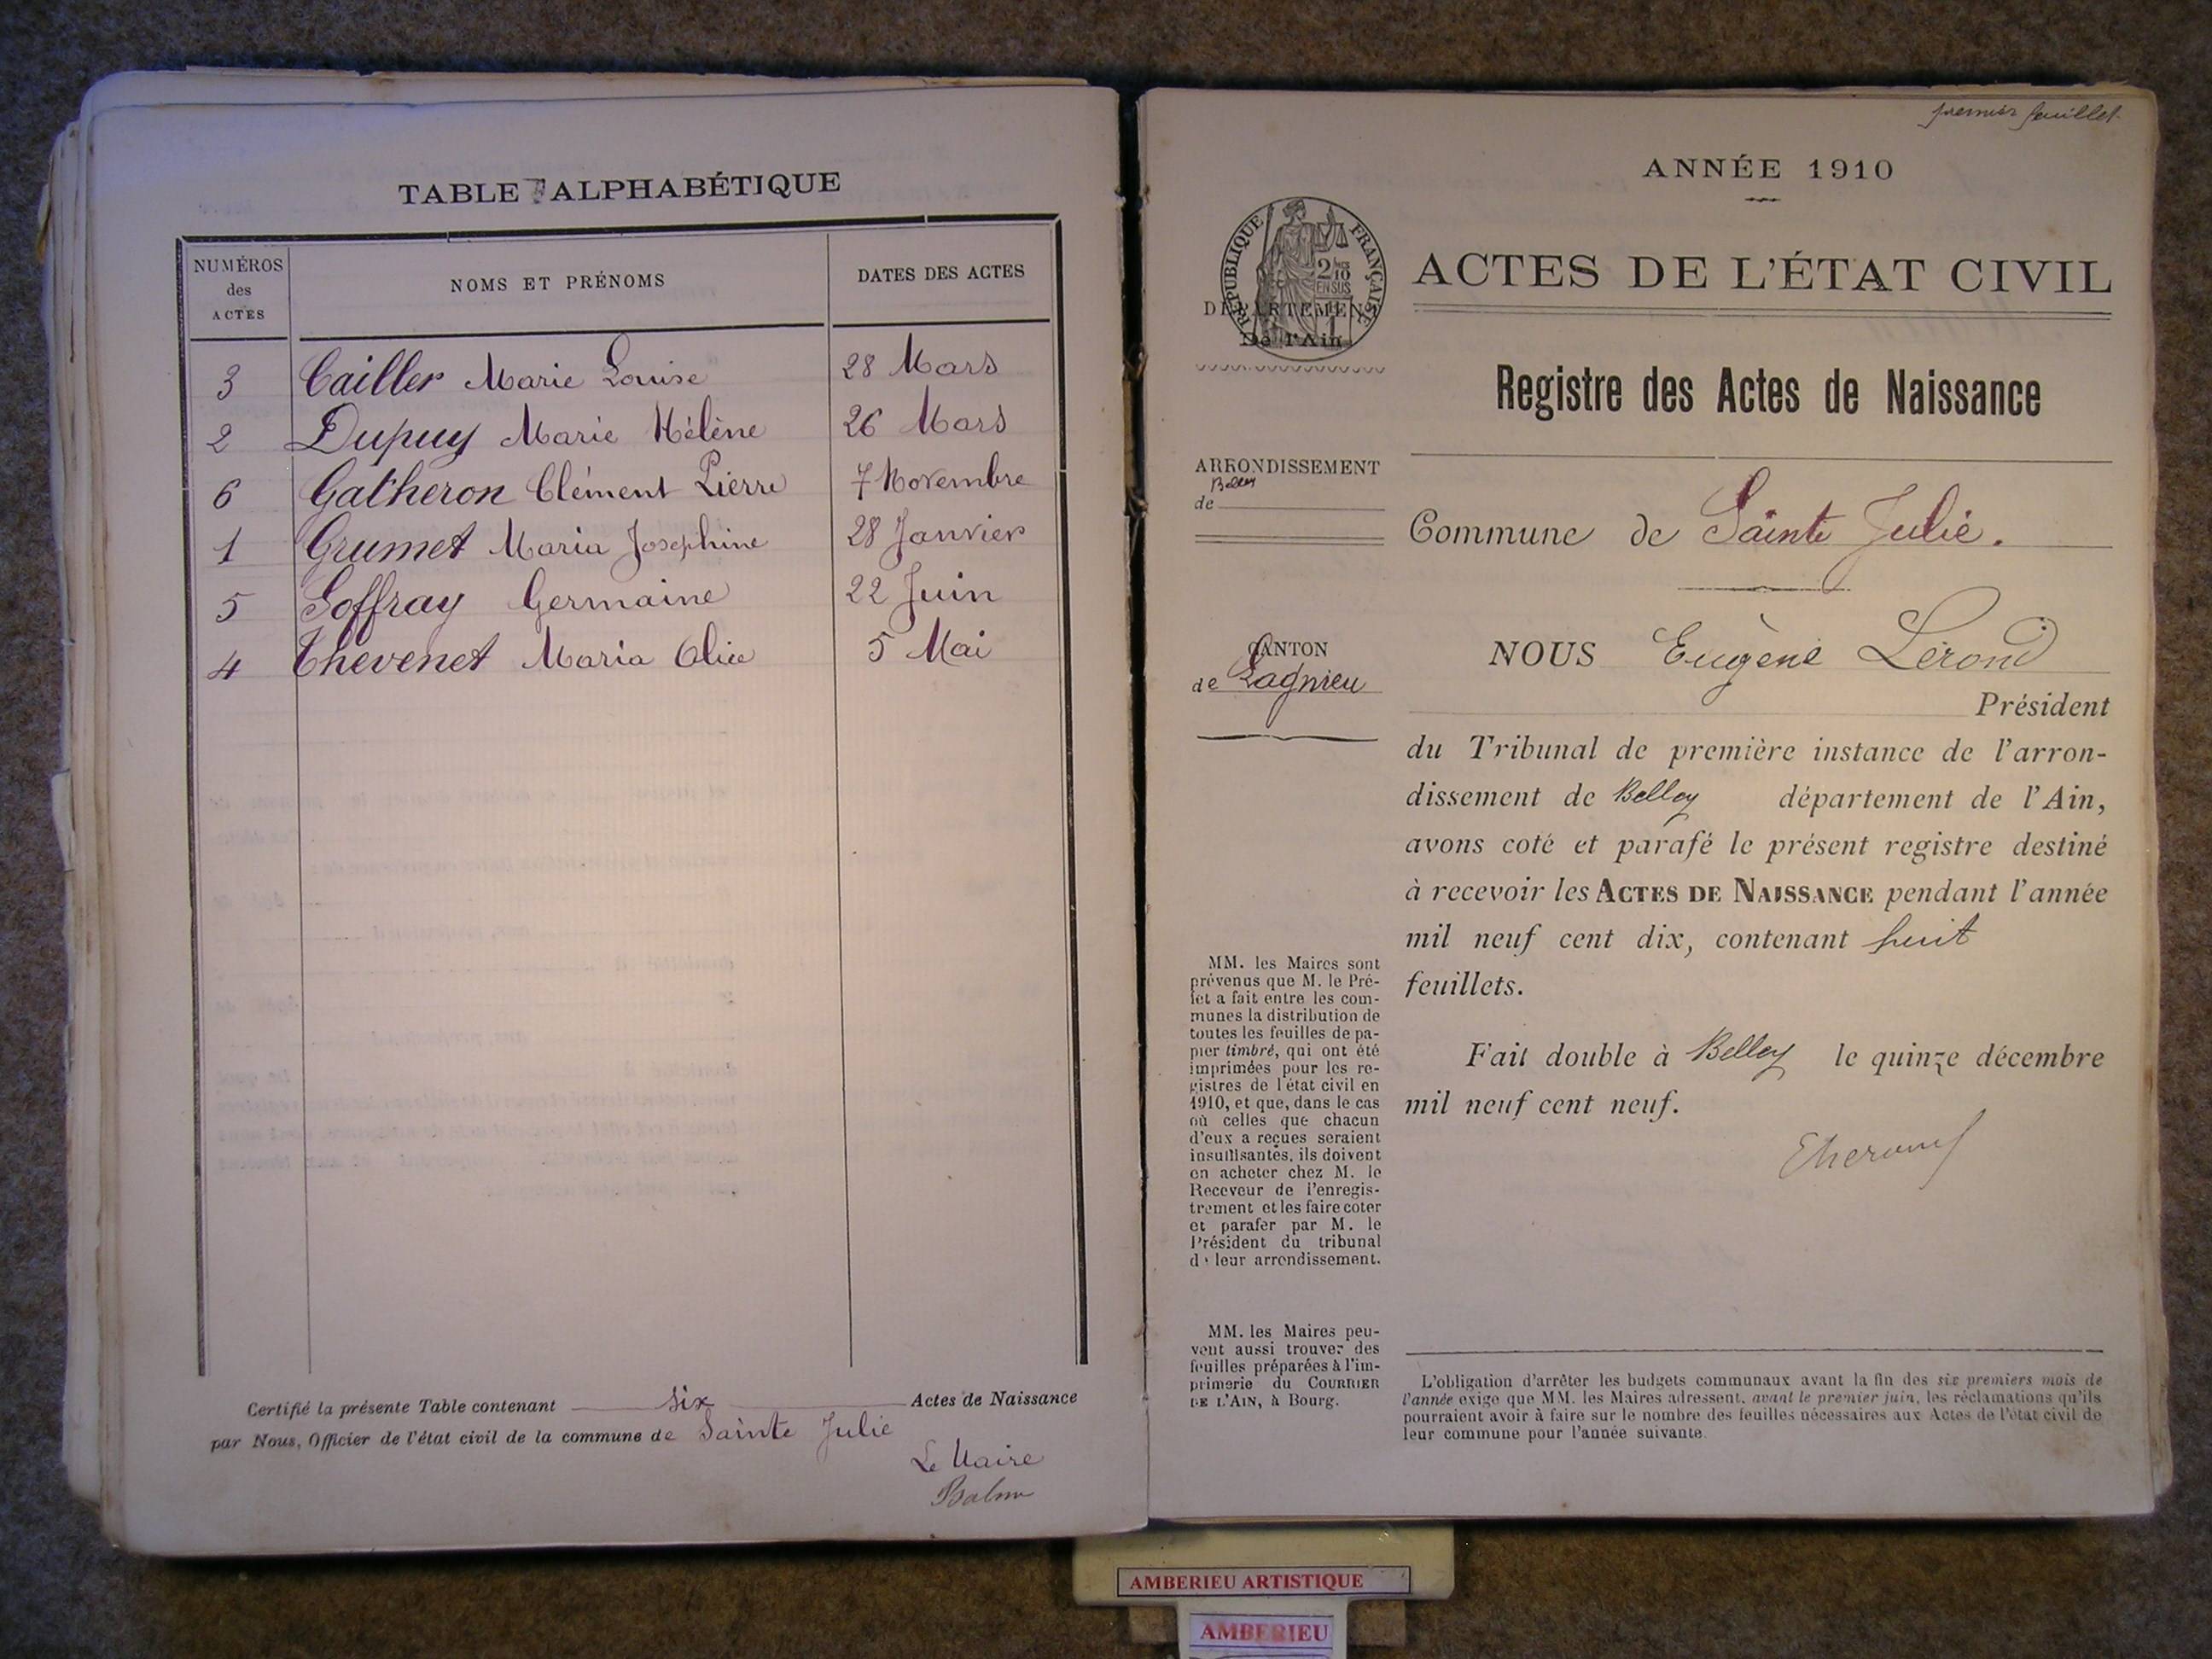 TABLE ALPHABÉTIQUE
NUMÉROS des ACTES
NOMS ET PRÉNOMS
DATES DES ACTES
3 Cailler Marie Louise 28 Mars
2 Dupuy Marie Hélène 26 Mars
6 Gatheron Clément Pierre 7 Novembre
1 Grumet Maria Josephine 28 Janvier
5 Goffray Germaine 22 Juin
4 Thevenet Maria Alice 5 Mai
Certifié la présente Table contenant six Actes de Naissance
par Nous, Officier de l'état civil de la commune de Sainte Julie
Le Maire
premier feuillet
ANNÉE 1910
RÉPUBLIQUE FRANÇAISE
2/10 EN SUS
DÉPARTEMENT
De l'Ain
ACTES DE L'ÉTAT CIVIL
Registre des Actes de Naissance
ARRONDISSEMENT
de Belley
Commune de Sainte Julie.
CANTON
de Lagnieu
NOUS Eugène Lérond
Président
du Tribunal de première instance de l'arron-
dissement de Belley département de l'Ain,
avons coté et parafé le présent registre destiné
à recevoir les ACTES DE NAISSANCE pendant l'année
mil neuf cent dix, contenant huit
feuillets.
Fait double à Belley le quinze décembre
mil neuf cent neuf.
MM. les Maires sont
prévenus que M. le Pré-
fet a fait entre les com-
munes la distribution de
toutes les feuilles de pa-
pier timbré, qui ont été
imprimées pour les re-
gistres de l'état civil en
1910, et que, dans le cas
où celles que chacun
d'eux a reçues seraient
insuffisantes, ils doivent
en acheter chez M. le
Receveur de l'enregis-
trement et les faire coter
et parafer par M. le
Président du tribunal
de leur arrondissement.
MM. les Maires peu-
vent aussi trouver des
feuilles préparées à l'im-
primerie du COURRIER
DE L'AIN, à Bourg.
L'obligation d'arrêter les budgets communaux avant la fin des six premiers mois de
l'année exige que MM. les Maires adressent, avant le premier juin, les réclamations qu'ils
pourraient avoir à faire sur le nombre des feuilles nécessaires aux Actes de l'état civil de
leur commune pour l'année suivante.
AMBERIEU ARTISTIQUE
AMBERIEU